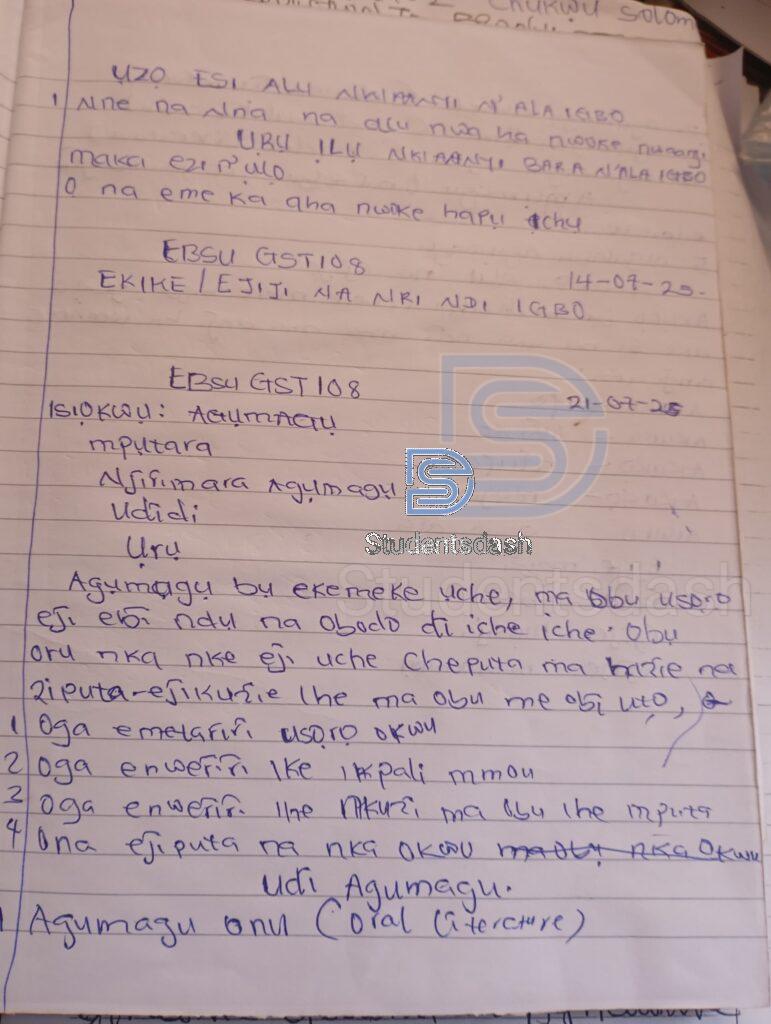 Chukwu Solom
ỤZỌ ESI ALỤ NKỊRỊNYỊ N'ALA IGBO
1 Nne na Nna na alu nwa ha nwoke nwanyi
ỤRỤ ỊLỤ NKỊRỊNYỊ BARA N'ALA IGBO
maka ezi n'ụlọ
O na eme ka aha nwoke hapụ ịchụ
EBSU GST108
14-07-25.
EKIKE / EJIJI NA NRI NDI IGBO
EBSU GST 108
21-07-25
ISIOKWU: AGỤMAGỤ
mputara
Njirimara Agụmagụ
Udidi
Ụrụ
Studentsdash
Studentsdash
Agụmagụ bụ ekemeke uche, ma ọbụ usoro
eji ebi ndụ na obodo di iche iche. Obu
oru nka nke eji uche cheputa ma hazie na
ziputa-ejikuzie Ihe ma obu me obi utọ,
1 Oga emelariri usọrọ okwu
2 Oga enweriri Ike ikpali mmou
3 Oga enweriri Ihe Nkuzi ma obu ihe mputa
4 Ona ejiputa na nka okwu ma obụ nka Okwu
Udi Agumagu.
1 Agumagu onu (Oral literature)